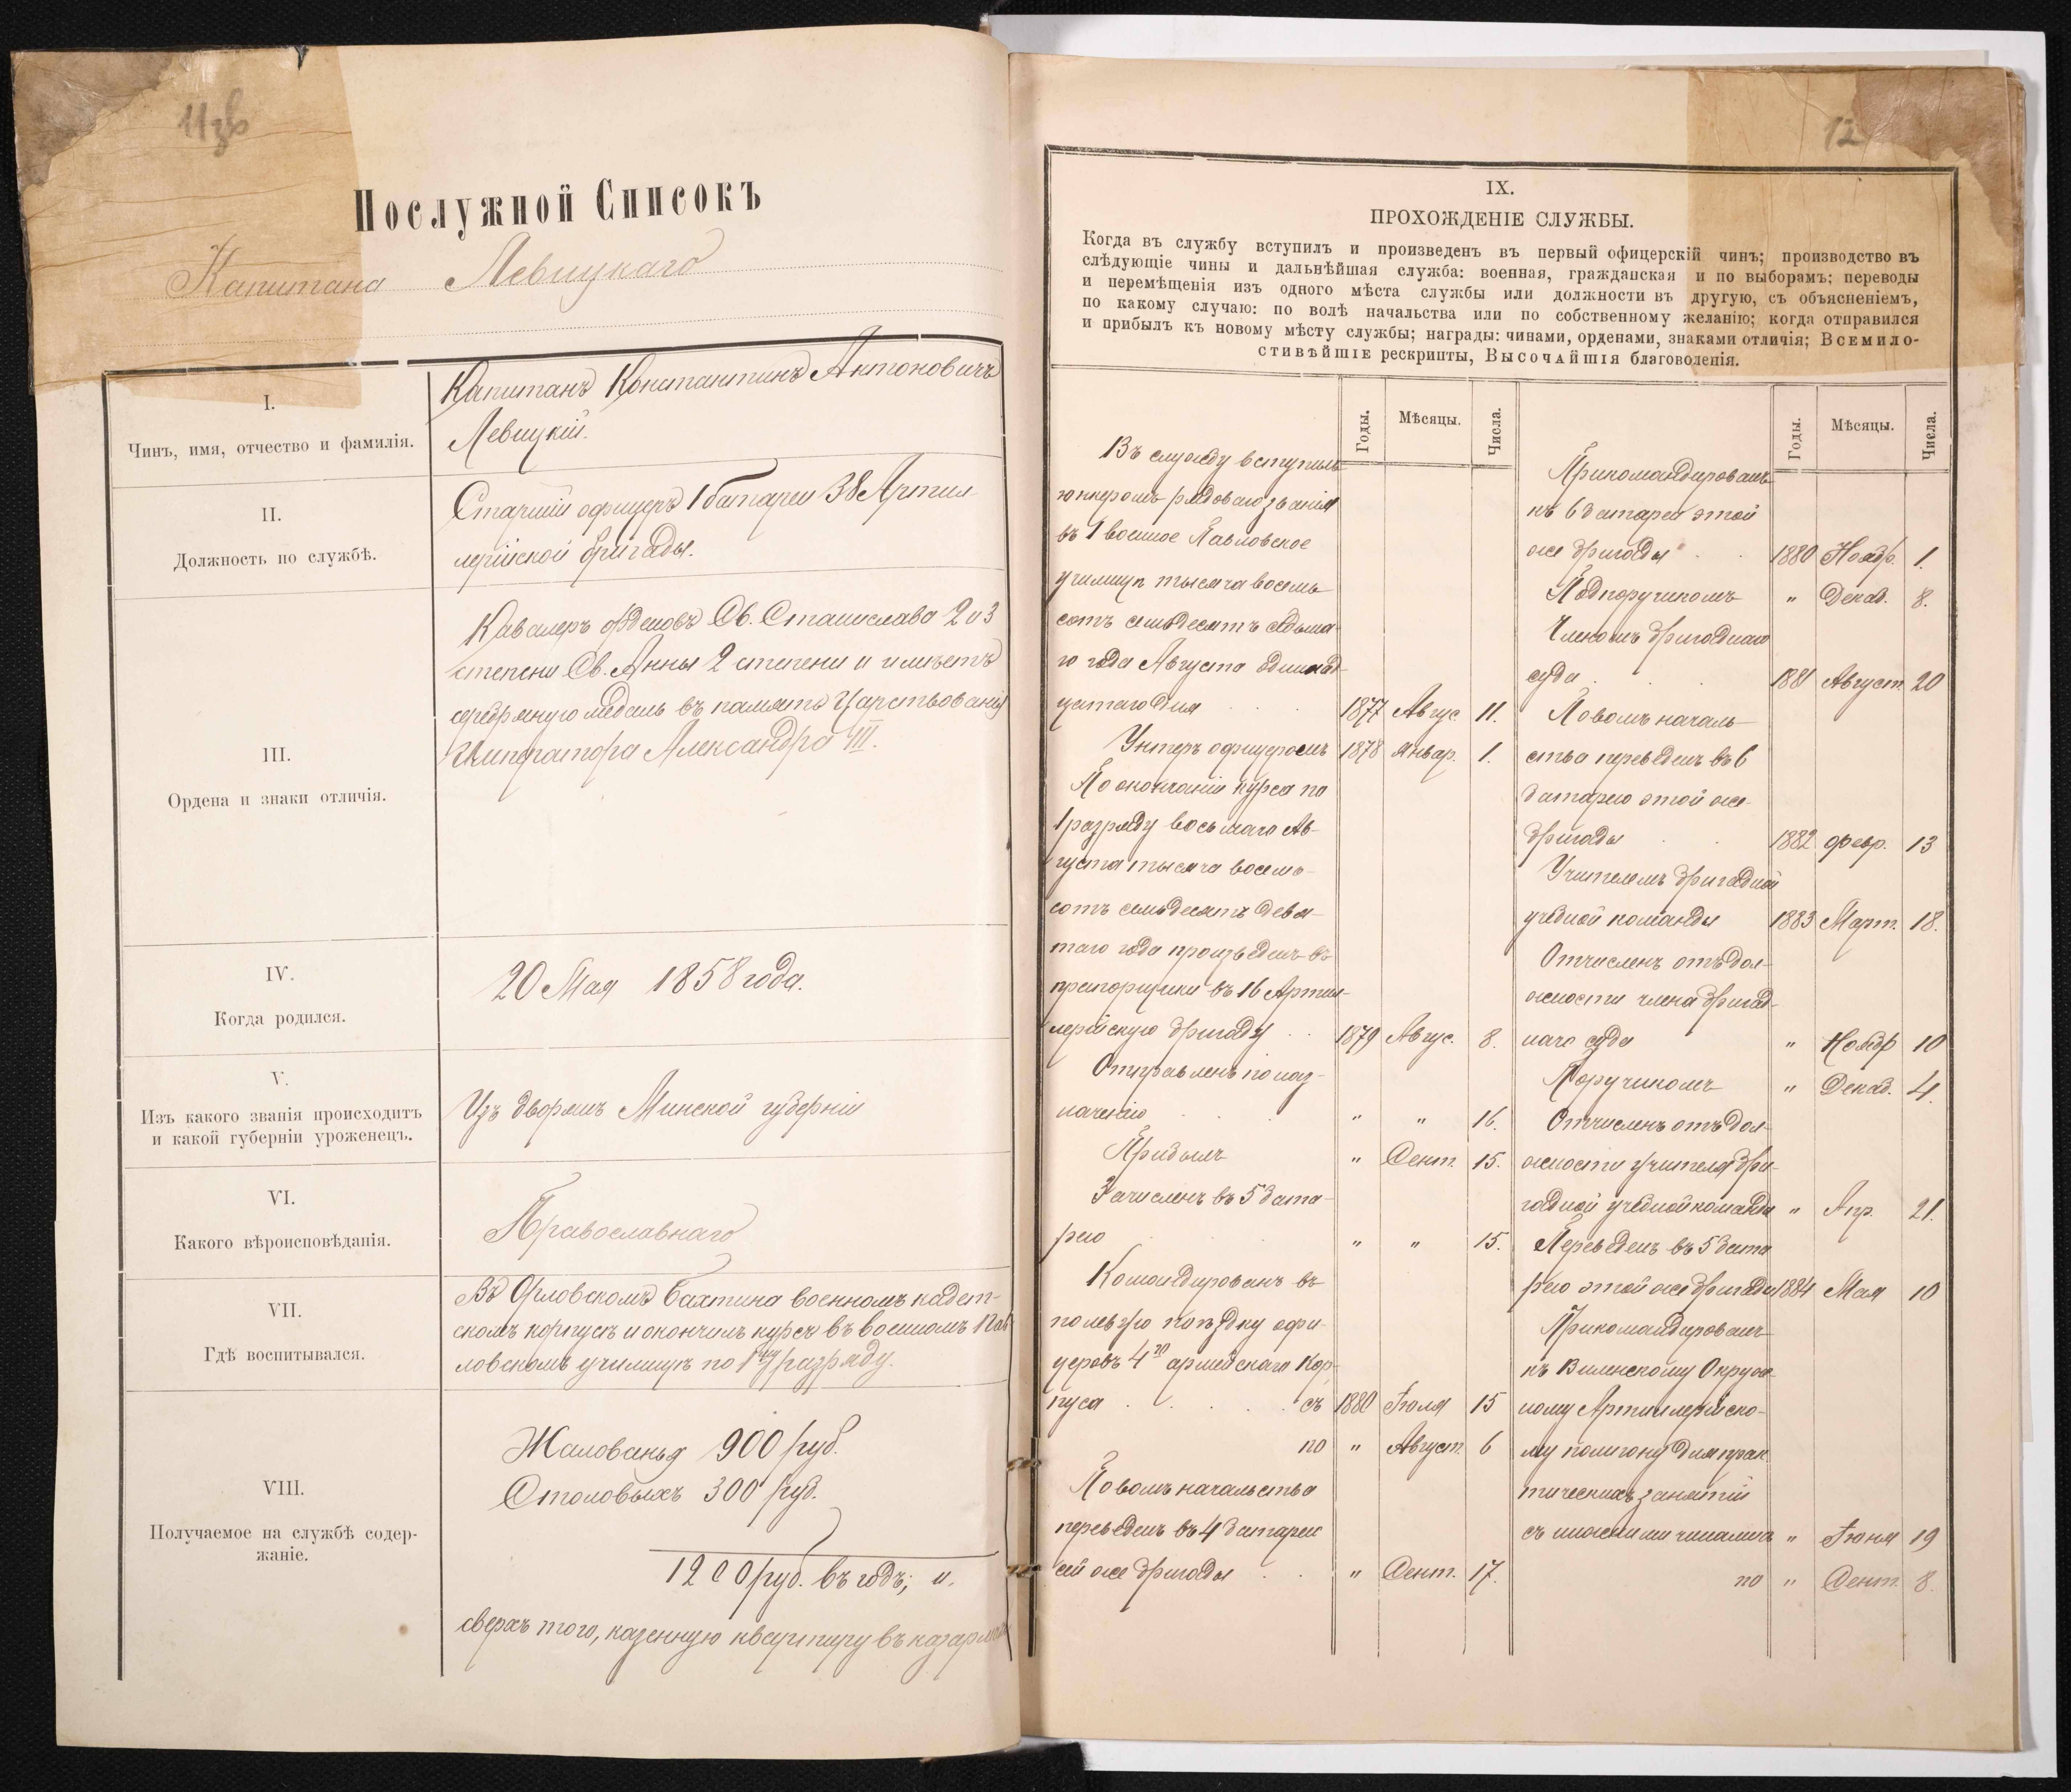 11зв
Послужной Списокъ
Капитана Левицкаго
I.
Чинъ, имя, отчество и фамилія.
Капитанъ Константинъ Антоновичъ
Левицкій.
II.
Должность по службѣ.
Старшій офицеръ 1 батареи 38 Артил-
лерійской бригады.
III.
Ордена и знаки отличія.
Кавалеръ орденовъ Св. Станислава 2 и 3
степени Св. Анны 2 степени и имѣетъ
серебряную медаль въ память Царствованія
Императора Александра III.
IV.
Когда родился.
20 Мая 1858 года.
V.
Изъ какого званія происходитъ
и какой губерніи уроженецъ.
Изъ дворянъ Минской губерніи
VI.
Какого вѣроисповѣданія.
Православнаго
VII.
Гдѣ воспитывался.
Въ Орловскомъ Бахтина военномъ кадет-
скомъ корпусѣ и окончилъ курсъ въ военномъ Пав
ловскомъ училищѣ по 1му разряду.
VIII.
Получаемое на службѣ содер-
жаніе.
Жалованья 900 руб.
Столовыхъ 300 руб.
1200 руб. въ годъ, и.
сверхъ того, казенную квартиру въ казармахъ
12
IX.
ПРОХОЖДЕНІЕ СЛУЖБЫ.
Когда въ службу вступилъ и произведенъ въ первый офицерскій чинъ; производство въ
слѣдующіе чины и дальнѣйшая служба: военная, гражданская и по выборамъ; переводы
и перемѣщенія изъ одного мѣста службы или должности въ другую, съ объясненіемъ,
по какому случаю: по волѣ начальства или по собственному желанію; когда отправился
и прибылъ къ новому мѣсту службы; награды: чинами, орденами, знаками отличія; Всемило-
стивѣйшіе рескрипты, Высочайшія благоволенія.
Годы. Мѣсяцы. Числа.
Въ службу вступилъ
юнкеромъ рядоваго званія
въ 1 военное Павловское
училище тысяча восемь
сотъ семьдесятъ седьма-
го года Августа одинад-
цатаго дня 1877 Авгус. 11.
Унтеръ офицеромъ 1878 Январ. 1.
По окончаніи курса по
1 разряду восьмаго Ав-
густа тысяча восемь-
сотъ семьдесятъ девя-
таго года произведенъ въ
прапорщики въ 16 Артил-
лерійскую бригаду 1879 Авгус. 8.
Отправленъ по наз-
наченію " " 16.
Прибылъ " Сент. 15.
Зачисленъ въ 5 бата-
рею " " 15.
Командированъ въ
полевую поѣздку офи-
церовъ 4го армейскаго Кор-
пуса съ 1880 Іюля 15
по " Август. 6
По волѣ начальства
переведенъ въ 4 батарею
сей же бригады " Сент. 17.
Годы. Мѣсяцы. Числа.
Прикомандированъ
къ 6 батареи этой
же бригады 1880 Ноябр. 1.
Подпоручикомъ " Декаб. 8.
Членомъ бригаднаго
суда 1881 Август. 20
По волѣ началь-
ства переведенъ въ 6
батарею этой же
бригады 1882 Февр. 13
Учителемъ бригадной
учебной команды 1883 Март. 18.
Отчисленъ отъ дол-
жности члена бригад-
наго суда " Ноябр 10
Поручикомъ " Декаб. 4.
Отчисленъ отъ дол-
жности учителя бри-
гадной учебной команды " Апр. 21.
Переведенъ въ 5 бата
рею этой же бригады 1884 Мая 10
Прикомандированъ
къ Виленскому Окруж
ному Артиллерійско-
му полигону для прак
тическихъ занятій
съ нижними чинами съ " Іюня 19
по " Сент. 8.